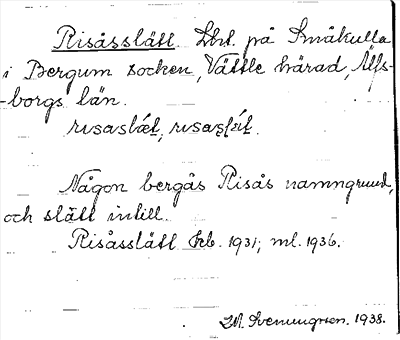 Risåsslätt. Lht. på Småkulla
i Bergum socken, Vättle härad, Älfs-
-borgs län.
Någon bergås Risås namngrund,
och slätt intill.
Risåsslätt kb. 1931; ml. 1936.
Svenungson. 1938.